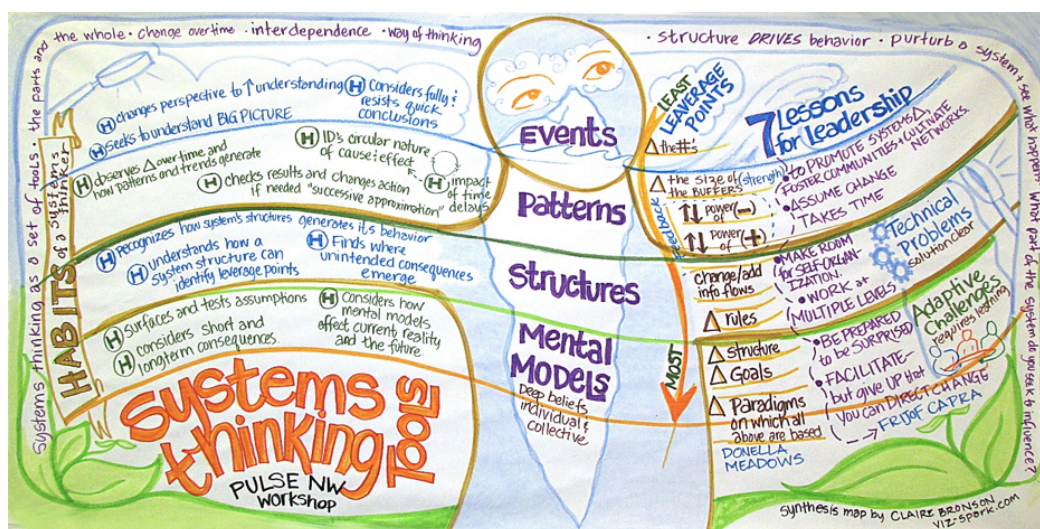 systems thinking as a set of tools • the parts and the whole • change over time • interdependence • way of thinking
• structure DRIVES behavior • purturb a system + see what happens. What part of the system do you seek to influence?
HABITS of a systems thinker
H changes perspective to ↑ understanding
H Considers fully &
resists quick
conclusions
H Seeks to understand BIG PICTURE
H observes Δ over time and
how patterns and trends generate
H ID's circular nature
of cause & effect
H impact
of time
delays
H checks results and changes action
if needed "successive approximation"
H Recognizes how system's structures generates its behavior
H understands how a
system structure can
identify leverage points
H Finds where
unintended consequences
emerge
H surfaces and tests assumptions
H considers short and
longterm consequences.
H considers how
mental models
affect current reality
and the future
systems
thinking
TOOLS
PULSE NW
workshop
Events
Patterns
Structures
Mental
Models
Deep beliefs
individual &
collective
LEAST
LEAVERAGE
POINTS
Δ the #'s
Δ the size of (strength)
the BUFFERS
feedback
↑↓ power of (-)
↑↓ power of (+)
change/add
info flows
Δ rules
MOST
Δ structure
Δ Goals
Δ Paradigms
on which all
above are based
DONELLA
MEADOWS
7 Lessons
for Leadership
• TO PROMOTE SYSTEMS Δ,
FOSTER COMMUNITIES + CULTIVATE
NETWORKS.
• ASSUME CHANGE
TAKES TIME
• MAKE ROOM
for SELF-ORGAN-
IZATION.
• WORK at
MULTIPLE LEVELS
• BE PREPARED
to be SURPRISED
• FACILITATE-
but give UP that
you can DIRECT CHANGE
→ FRIJOF CAPRA
Technical
Problems
solution clear
Adaptive
Challenges
requires learning
synthesis map by CLAIRE BRONSON
VIZ-SPARK.COM